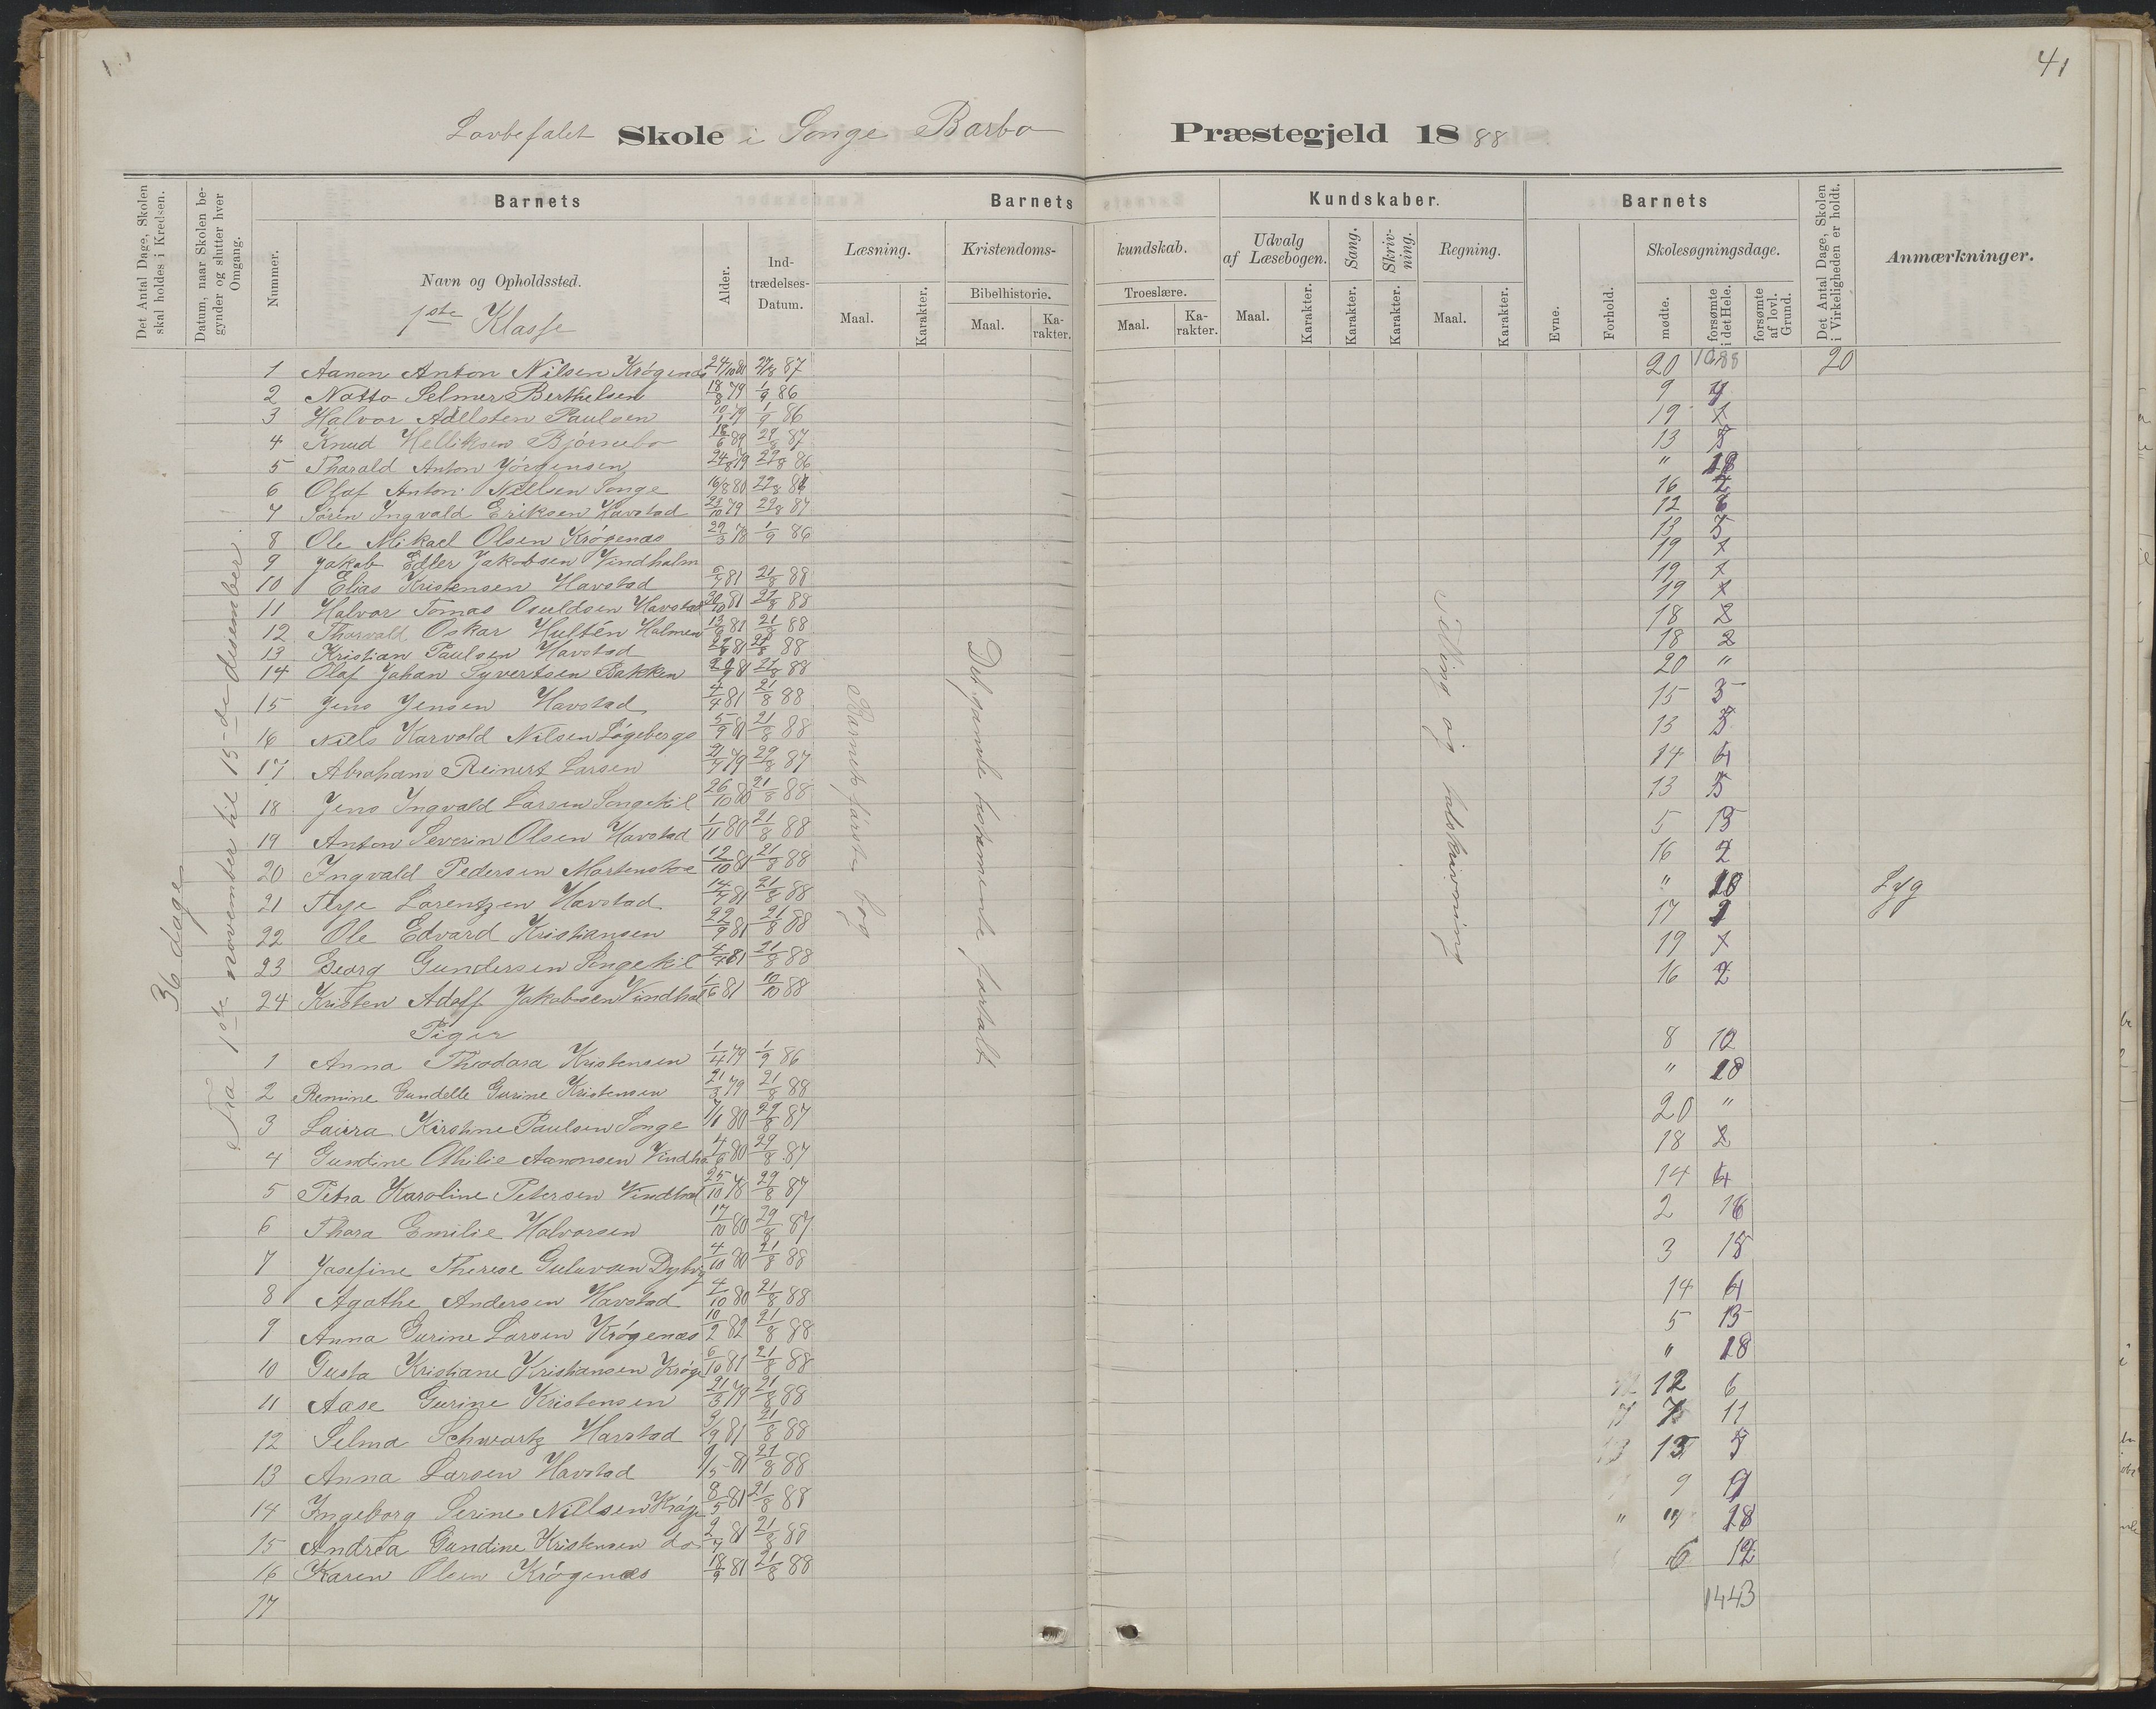 41
Lovbefalet Skole i Songe Barbo Præstegjeld 1888
Det Antal Dage, Skolen skal holdes i Kredsen.
Datum, naar Skolen begynder og slutter hver Omgang.
Barnets
Barnets
Kundskaber.
Barnets
Det Antal Dage, Skolen i Virkeligheden er holdt.
Anmærkninger.
Nummer.
Navn og Opholdssted.
Alder.
Indtrædelses-Datum.
Læsning.
Kristendoms-
kundskab.
Udvalg af Læsebogen.
Sang.
Skrivning.
Regning.
Evne.
Forhold.
Skolesøgningsdage.
Bibelhistorie.
Troeslære.
Maal.
Karakter.
Maal.
Karakter.
Maal.
Karakter.
Maal.
Karakter.
Karakter.
Karakter.
Maal.
Karakter.
mødte.
forsømte i det Hele.
forsømte af lovl. Grund.
1ste Klasse
36 dage
Fra 1ste november til 15-de desember.
Barnets første bog
Det gamle testamente fortalt
Telling og talskrivning
1 Aanon Anton Nilsen Krøgenæs 24/10 81 29/8 87 20 20
2 Notto Selmer Berthelsen 18/8 79 1/9 86 9
3 Halvor Adelsten Paulsen 1/9 86 19
4 Knud Helliksen Bjørnebo 29/8 87 13
5 Tharald Anton Jörgensen 24/8 79 29/8 86 "
6 Olaf Anton Nillsen Songe 16/8 80 16
7 Sörin Ingvald Eriksen Havstad 23/10 79 29/8 87 12
8 Ole Mikael Olsen Krögenæs 29/3 78 1/9 86 13
9 Jakob Edler Jakobsen Vindholm 19
10 Elias Kristensen Havstad 5/7 81 21/8 88 19
11 Halvor Tomas Osuldsen Havstad 20/10 81 21/8 88 19
12 Thorvald Oskar Hultén Holmen 81 21/8 88 18 2
13 Kristian Paulsen Havstad 81 21/8 88 18 2
14 Olaf Johan Syvertsen Bakken 81 21/8 88 20 "
15 Jens Jensen Havstad 4/4 81 21/8 88 15
16 Niels Karvald Nilsen Løgebergs 5/9 81 21/8 88 13
17 Abraham Reinert Larsen 79 29/8 87 14
18 Jens Ingvald Larsen Songekil 26/10 80 21/8 88 13
19 Anton Severin Olsen Havstad 1/11 80 21/8 88 5
20 Ingvald Pedersen 12/10 81 21/8 88 16
21 Terje Larentzen Havstad 81 21/8 88 "
22 Ole Edvard Kristiansen 22/9 81 21/8 88 17
23 Georg Gundersen Songekil 81 21/8 88 19
24 Kristen Adolf Jakobsen Vindhol 1/6 81 10/10 88 16
Piger
1 Anna Theodora Kristensen 1/4 79 1/9 86 8
2 Remine Gundelle Gurine Kristensen 21/3 79 21/8 88 " 18
3 Laura Kirstine Paulsen Songe 80 29/8 87 20 "
4 Gundine Othilie Aanonsen Vindho 4/6 80 29/8 87 18 2
5 Petra Karoline Petersen Vindhol 25/10 78 29/8 87 14
6 Thora Emilie Halvorsen 17/10 80 29/8 87 2
7 Josefine Therese Guluvsen Dybvig 4/10 80 21/8 88 3
8 Agathe Andersen Havstad 4/10 80 21/8 88 14
9 Anna Gurine Larsen Krøgenæs 10/2 82 21/8 88 5 13
10 Gusta Kristiane Kristiansen Krøge 6/10 81 21/8 88 " 18
11 Aase Gurine Kristensen 21/3 79 21/8 88 12 6
12 Selma Schwartz Havstad 9/9 81 21/8 88 7 11
13 Anna Larsen Havstad 9/5 81 21/8 88 13
14 Ingeborg Serine Nillsen Krøge 8/5 81 21/8 88 9
15 Andrea Gundine Kristensen do 2/7 81 21/8 88 " 18
16 Karen Olsen Krögenæs 18/9 81 21/8 88 6 12
17